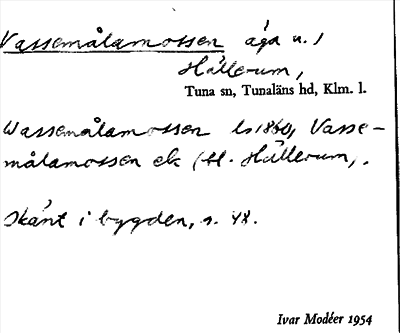 Vassemålamossen äga u. /
Hällerum,
Tuna sn, Tunaläns hd, Klm. l.
Wassemålamossen ls 1860, Vasse-
målamossen ek (bl. Hällerum).
Skänt i bygden, s. 48.
Ivar Modéer 1954